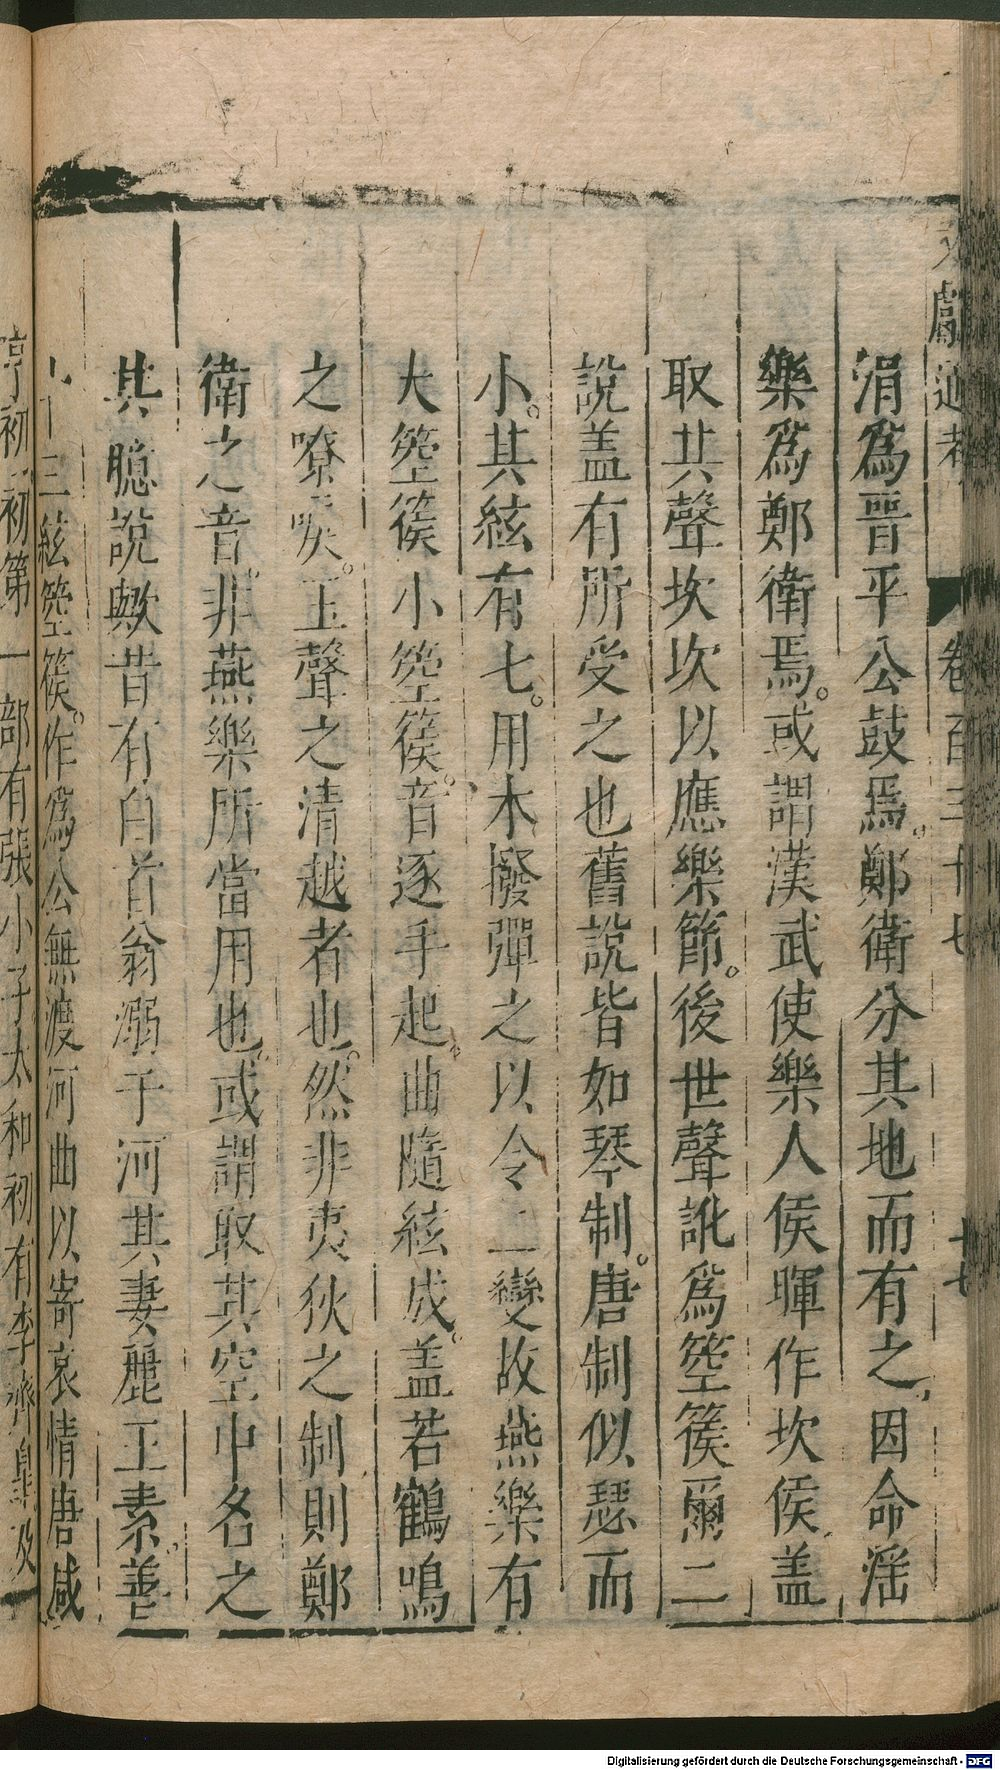 文獻通考 卷百三十七 十七
涓爲晉平公鼓焉鄭衛分其地而有之因命滛
樂爲鄭衛焉或謂漢武使樂人侯暉作坎侯盖
取其聲坎坎以應樂節後世聲訛爲箜篌爾二
說盖有所受之也舊說皆如琴制唐制似瑟而
小其絃有七用木撥彈之以令二變故燕樂有
大箜篌小箜篌音逐手起曲隨絃成盖若鶴鳴
之嘹唳玉聲之清越者也然非夷狄之制則鄭
衛之音非燕樂所當用也或謂取其空中名之
其臆說歟昔有白首翁溺于河其妻麗玉素善
十三絃箜篌作爲公無渡河曲以寄哀情唐咸
亨初初第一部有張小子太和初有李齊皐及
Digitalisierung gefördert durch die Deutsche Forschungsgemeinschaft - DFG